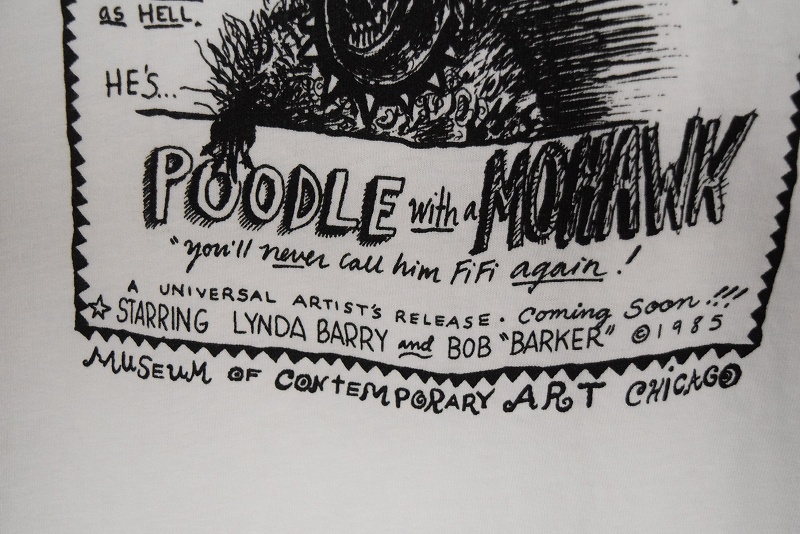 as HELL.
HE'S...
POODLE with a MOHAWK
"you'll never call him FiFi again!
A UNIVERSAL ARTIST'S RELEASE. Coming Soon!!!
☆ STARRING LYNDA BARRY and BOB "BARKER" ©1985
MUSEUM OF CONTEMPORARY ART CHICAGO